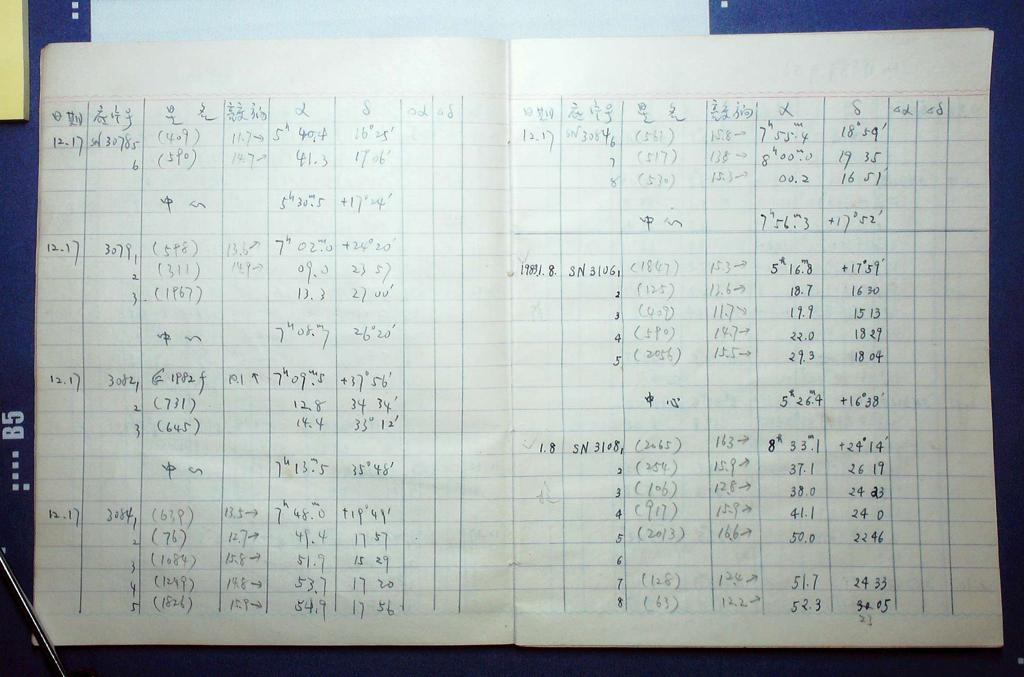 日期 底片号 星名 α δ Δα Δδ
12.17 SN 30785 (409) 11.7→ 5h 40.4 16°25'
6 (590) 14.7→ 41.3 19 06'
中心 5h 30m.5 +17°24'
12.17 3079 1 (598) 13.6 7h 02m.0 +24°20'
2 (311) 14.9→ 09.0 23 57
3 (1967) 13.3 27 00'
中心 7h 08m.7 26°20'
12.17 3082 1 1982f 10.1 ↑ 7h 09m.5 +37°56'
2 (731) 12.8 34 34'
3 (645) 14.4 33°12'
中心 7h 13m.5 35°48'
12.17 3084 1 (639) 13.5→ 7h 48m.0 +19°49'
2 (76) 12.7→ 49.4 17 57
3 (1084) 15.8→ 51.9 15 29
4 (1249) 14.8→ 53.7 17 20
5 (1826) 15.9→ 54.9 17 56
日期 底片号 星名 α δ Δα Δδ
12.17 SN 3084 6 (561) 15.8→ 7h 55m.4 18°59'
7 (517) 13.8→ 8h 00m.0 19 35
8 (530) 15.3→ 00.2 16 51'
中心 7h 56m.3 +17°52'
1983.1.8. SN 3106 1 (1847) 15.3→ 5h 16m.8 +17°59'
2 (125) 13.6→ 18.7 16 30
3 (409) 11.7→ 19.9 15 13
4 (590) 14.7→ 22.0 18 29
5 (2056) 15.5→ 29.3 18 04
中心 5h 26m.4 +16°38'
1.8 SN 3108 1 (2065) 16.3→ 8h 33m.1 +24°14'
2 (254) 15.9→ 37.1 26 19
3 (106) 12.8→ 38.0 24 23
4 (917) 15.9→ 41.1 24 0
5 (2013) 16.6→ 50.0 22 46
6
7 (128) 12.4→ 51.7 24 33
8 (63) 12.2→ 52.3 05
23
B5